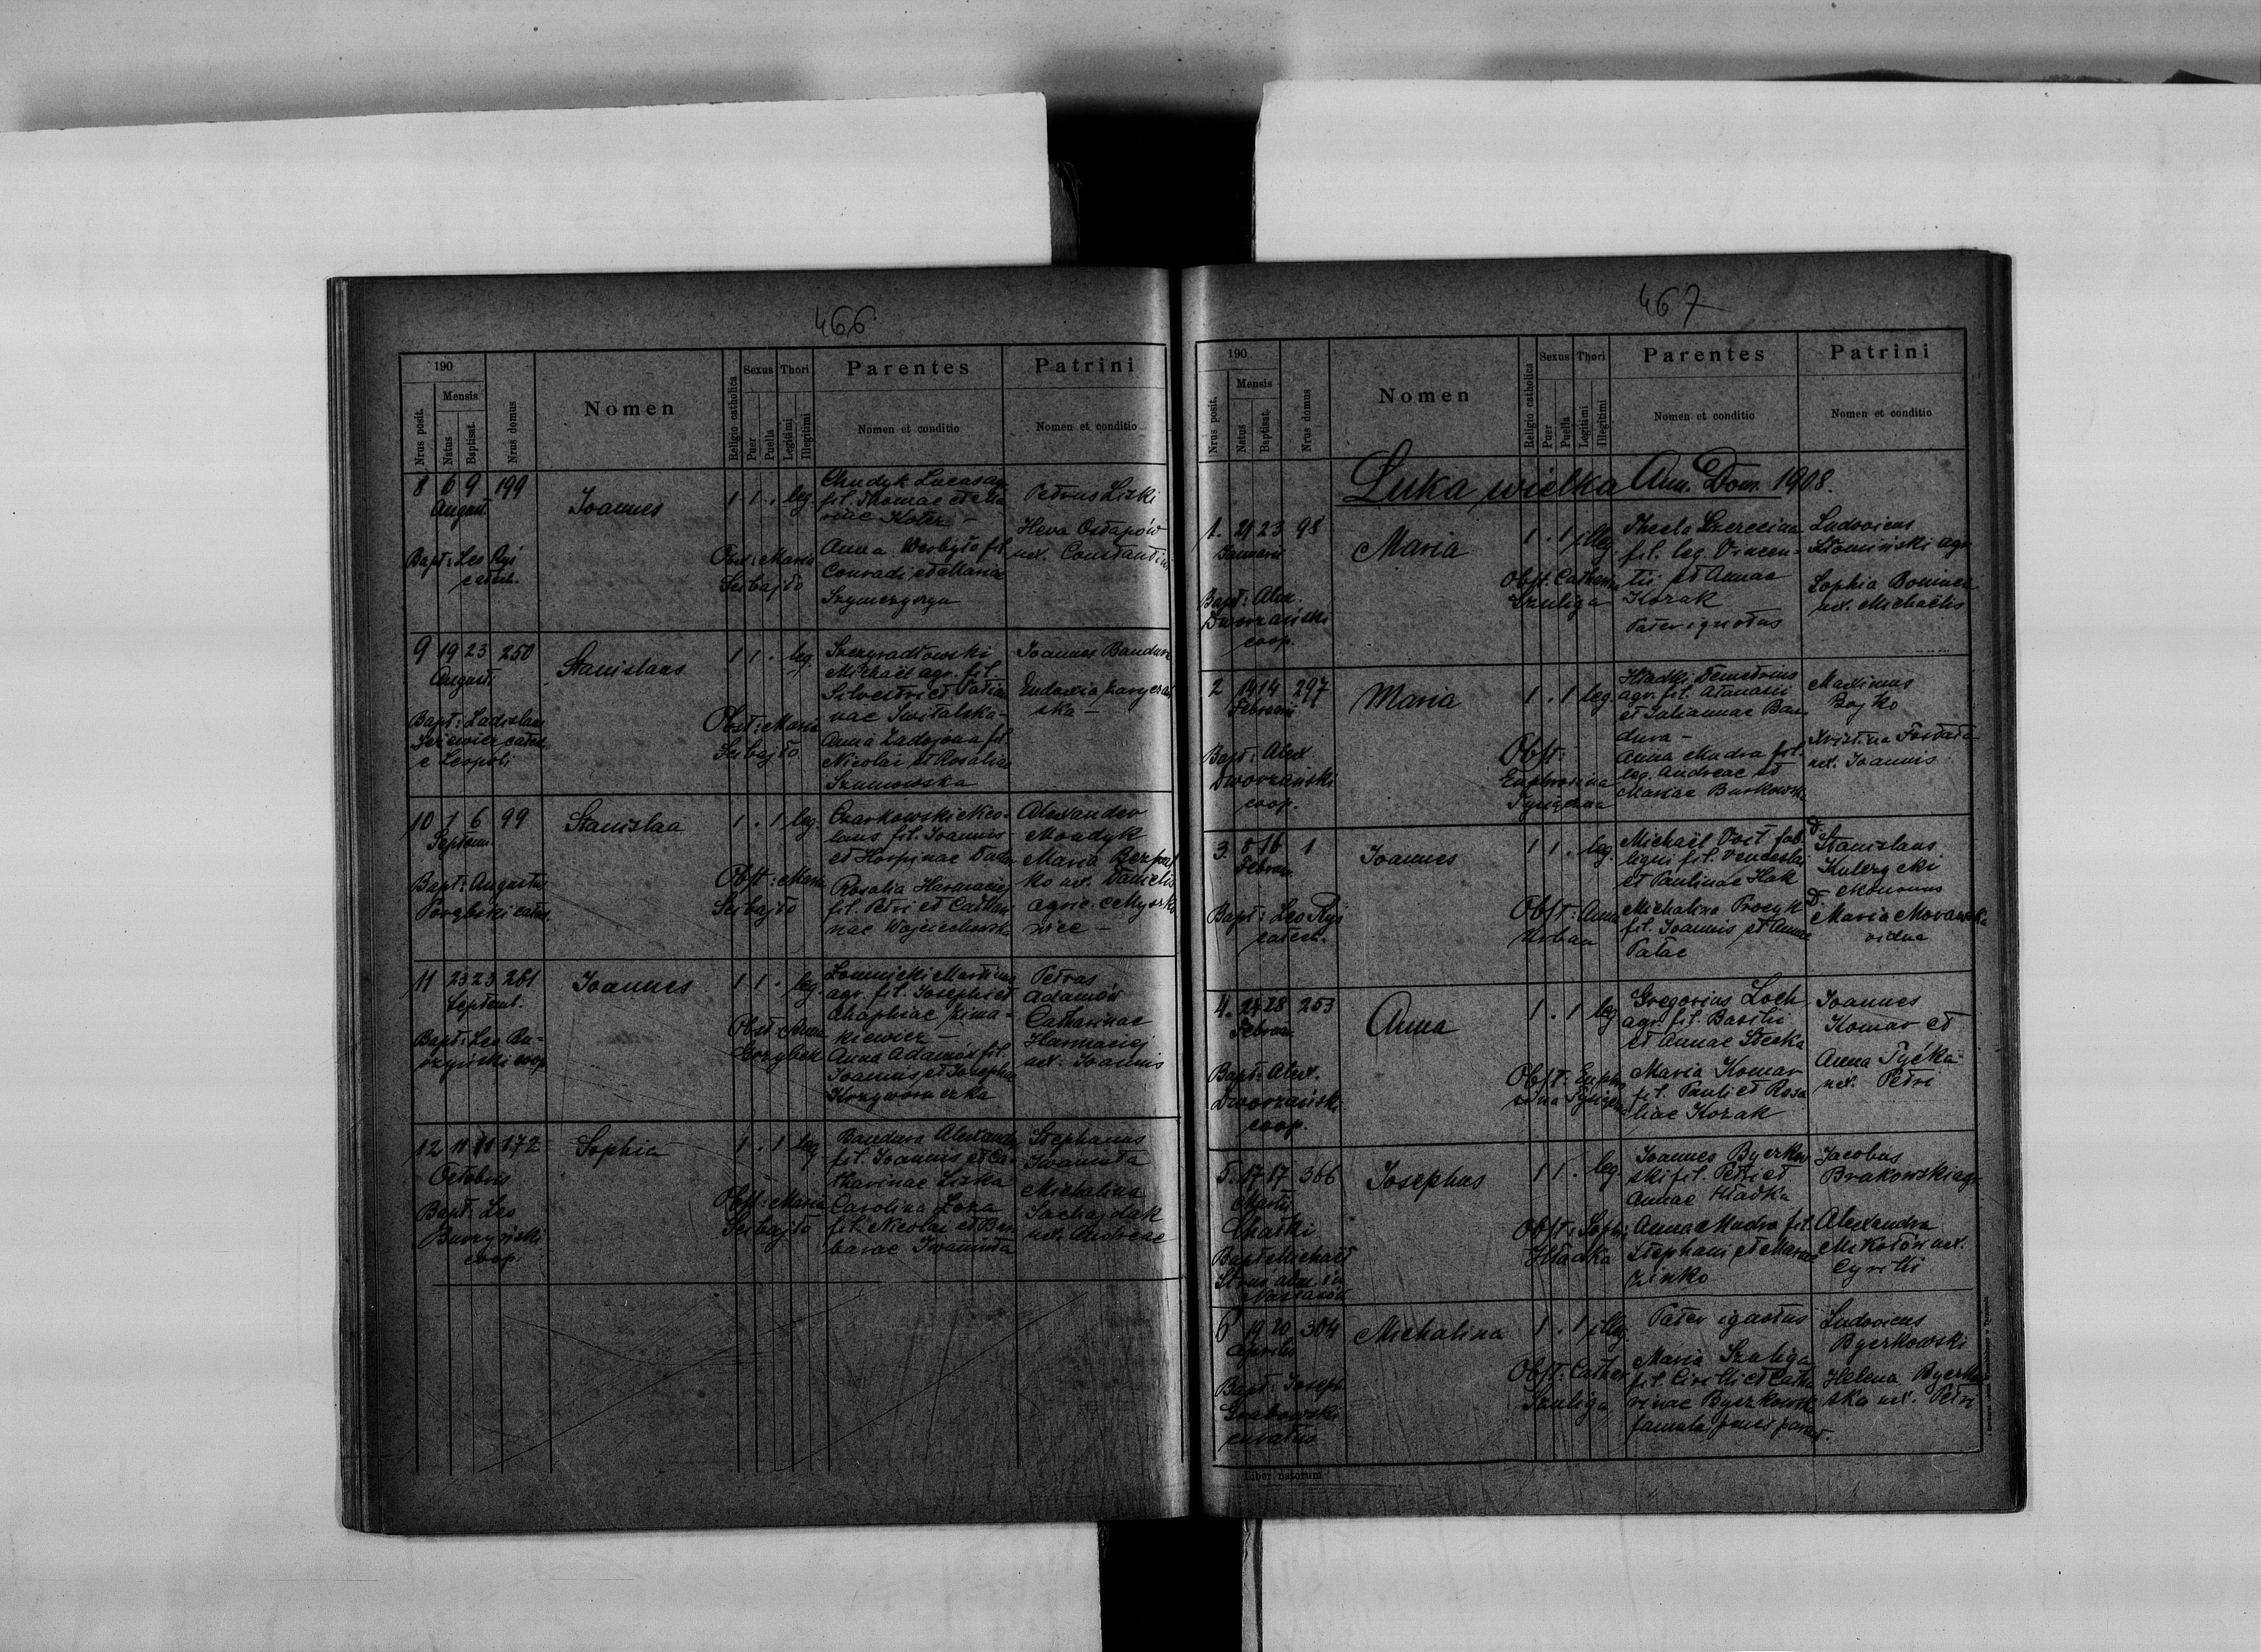 466
190
Mensis
Nrus posit.
Natus
Baptisat.
Nrus domus
Nomen
Religio catholica
Sexus
Puer
Puella
Thori
Legitimi
Illegitimi
Parentes
Nomen et conditio
Patrini
Nomen et conditio
8 6 9 199
August.
Joannes
1 1 . leg.
Chudyk Lucas agr
fil. Thomae et Ma
riae Koter -
Anna Werbyło fil
Conradi et Maria
Petrus Liski
Heva Ostapów
ux. Constantini
Bapt: Leo Ryś
catech.
Obst: Maria
Seibajło
9 19 23 250
August.
Stanislaus
1 1 . leg.
Michaël agr. fil.
Silvestri et Tatia
nae Switalska -
Anna Zadojana fil
Nicolai et Rosaliae
Szumowska
Joannes Bandura
Eudoxia
ska -
Bapt: Ladislaus
e Leopoli
Obst: Maria
Seibajło
10 1 6 99
Septem.
Stanislaa
1 . 1 leg.
Czarkowski Nico-
laus fil. Joannis
Rosalia Harmaciej
fil. Petri et Cathari
nae Wojciechowska
Alexander
Mondyk
Maria Bezpal
ko ux. Danielis
agric. e Myszko
wice -
Bapt: Augustus
Obst: Maria
Seibajło
11 23 23 261
Septemb.
Joannes
1 1 . leg.
Łomnicki Martinus
agr. fil. Josephi et
Ahaphiae Zima-
kiewicz -
Anna Adamów fil.
Joannis et Josepha
Petrus
Adamów
Catharinae
Harmaciej
ux. Joannis
Bapt: Leo Bu-
rzyński coop
Obst: Anna
Grzybek
12 11 11 172
Octobris
Sophia
1 . 1 leg
Bandura Alexander
fil. Joannis et Ca-
tharinae Liska
Carolina Łoza
fil. Nicolai et Bar
barae Iwaniuta
Stephanus
Iwaniuta
Michalina
Sachajdak
ux. Andreae
Bapt: Leo
Burzyński
coop.
Obst: Maria
Seibajło
467
190
Mensis
Nrus posit.
Natus
Baptisat.
Nrus domus
Nomen
Religio catholica
Sexus
Puer
Puella
Thori
Legitimi
Illegitimi
Parentes
Nomen et conditio
Patrini
Nomen et conditio
Łuka wielka Ann. Dom. 1908.
1. 21 23 98
Januarii
Maria
1 . 1 illeg
Thecla
fil. leg. Vincen-
tii et Annae
Kozak
Pater ignotus
Ludovicus
Słomiński agr
Sophia
ux. Michaëlis
Bapt: Alex.
Dworzański
coop.
Obst. Catharina
Szuliga
2 14 14 297
Februarii
Maria
1 . 1 leg.
Hładki Demetrius
agr. fil. Atanasii
et Julianae Ban
dura -
Anna Mudra fil.
leg. Andreae et
Mariae Burkowska
Maximus
Bojko
ux. Joannis
Bapt: Alex
Dworzański
coop.
Obst:
Euphrosina
3. 5 16 1
Februar.
Joannes
1 1 . leg.
Michaël Voit fab
ligni fil. Venceslai
et Paulinae Hak
Michalina Procyk
fil. Joannis et Annae
Patac
D. Stanislaus
Kulczycki
ekonomus
D. Maria Morawska
vidua
Bapt: Leo Ryś
catech.
Obst: Anna
Urban
4. 24 28 253
Februar.
Anna
1 . 1 leg
Gregorius Loch
agr. fil. Basilii
et Annae Stecka
Maria Komar
fil. Pauli et Rosa
liae Kozak
Joannes
Komar et
Anna Tyćka
ux. Petri
Bapt: Alex.
Dworzański
coop.
Obst: Euphro
sina
5. 17 17 366
Martii
Chatki
Josephus
1 1 . leg.
Joannes Byczkow
ski fil. Petri et
Annae Hładka
Anna Mudra fil.
Stephani et Mariae
Zinko
Jacobus
Brakowski agr.
Alexandra
Mikołów ux.
Cyrilli
Bapt Michaël
Obst: Sophi
Hładka
6 19 20 304
Aprilis
Michalina
1 . 1 illeg.
Pater ignotus
Maria Szuliga
fil. Cirilli et Catha
rinae Byczkowsk
famula penes parent.
Ludovicus
Byczkowski
Helena Byczkow
ska ux. Petri
Bapt: Joseph
Grabowski
curatus
Obst: Cathar
Szuliga
Liber natorum